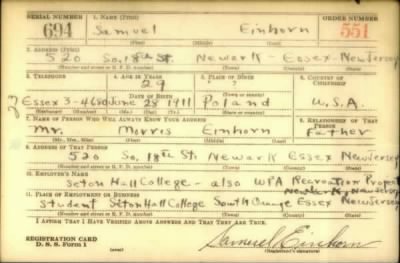 SERIAL NUMBER 1. NAME (Print) ORDER NUMBER
694 Samuel Einhorn 551
(First) (Middle) (Last)
2. ADDRESS (Print)
520 So. 18th St. Newark - Essex - New Jersey
(Number and street or R. F. D. number) (Town) (County) (State)
3. TELEPHONE 4. AGE IN YEARS 5. PLACE OF BIRTH 6. COUNTRY OF CITIZENSHIP
29
DATE OF BIRTH (Town or county)
Essex 3-4680 June 28 1911 Poland U.S.A.
(Exchange) (Number) (Mo.) (Day) (Yr.) (State or country)
7. NAME OF PERSON WHO WILL ALWAYS KNOW YOUR ADDRESS 8. RELATIONSHIP OF THAT PERSON
Mr. Morris Einhorn Father
(Mr., Mrs., Miss) (First) (Middle) (Last)
9. ADDRESS OF THAT PERSON
520 So. 18th St. Newark Essex New Jersey
(Number and street or R. F. D. number) (Town) (County) (State)
10. EMPLOYER'S NAME
Seton Hall College - also WPA Recreation Project
Newark, New Jersey
11. PLACE OF EMPLOYMENT OR BUSINESS
Student Seton Hall College South Orange Essex New Jersey
(Number and street or R. F. D. number) (Town) (County) (State)
I AFFIRM THAT I HAVE VERIFIED ABOVE ANSWERS AND THAT THEY ARE TRUE.
REGISTRATION CARD
D. S. S. Form 1 (over) Samuel Einhorn
(Registrant's signature)